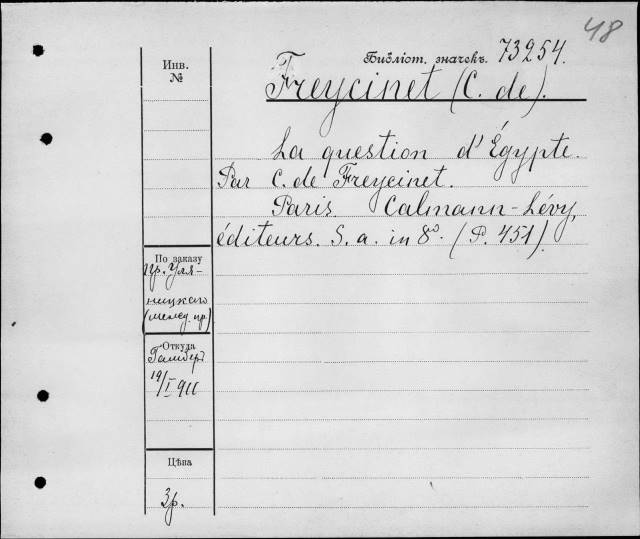 48
Библіот. значекъ. 73254.
Инв.
№
Freycinet (C. de).
La question d'Égypte.
Par C. de Freycinet.
Paris. Calmann-Lévy,
éditeurs. S. a. in 8°. (P. 451).
По заказу
пр. Уля-
ницкаго
Откуда
19/I 911
Цѣна
3р.